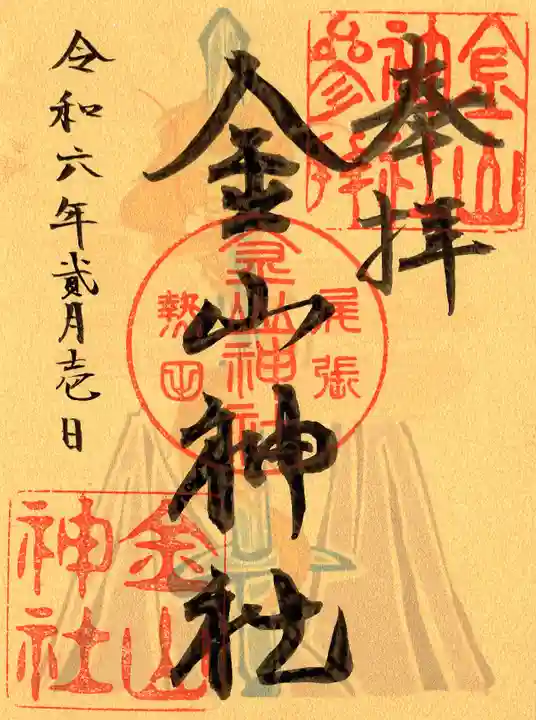 奉拝
金山神社
令和六年貳月壱日
金山
神社
参拝
尾張
金山神社
熱田
金山
神社